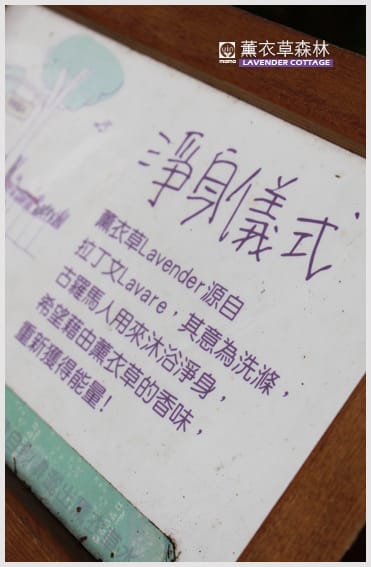 薰衣草森林
LAVENDER COTTAGE
淨身儀式
薰衣草Lavender源自
拉丁文Lavare，其意為洗滌，
古羅馬人用來沐浴淨身，
希望藉由薰衣草的香味，
重新獲得能量!